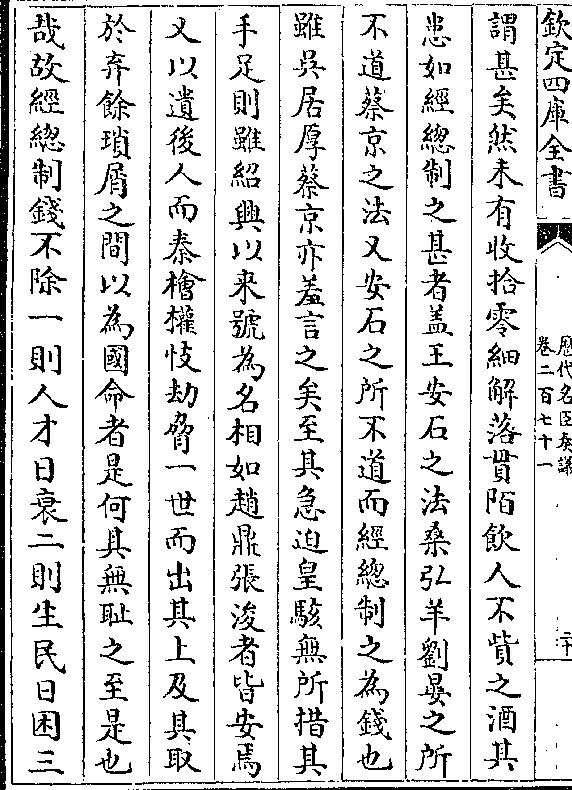 欽定四庫全書
歷代名臣奏議
卷二百七十一
二十
謂甚矣然未有收拾零細解落貫陌飲人不貲之酒其
患如經總制之甚者盖王安石之法桑弘羊劉晏之所
不道蔡京之法又安石之所不道而經總制之為錢也
雖吳居厚蔡京亦羞言之矣至其急迫皇駭無所措其
手足則雖紹興以來號為名相如趙鼎張浚者皆安焉
又以遺後人而秦檜權忮劫脅一世而出其上及其取
於弃餘瑣屑之間以為國命者是何其無耻之至是也
哉故經總制錢不除一則人才日衰二則生民日困三